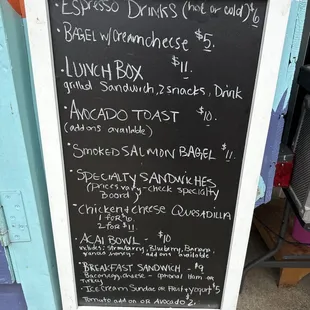 • Espresso Drinks (hot or cold) $6
• Bagel w/Creamcheese $5.
• Lunch Box $11.
grilled Sandwich, 2 snacks, Drink
• Avocado Toast $10.
(add ons available)
• Smoked Salmon Bagel $11.
• Specialty Sandwiches
(prices vary - check specialty
board)
• Chicken & Cheese Quesadilla
1 for $6.
2 for $11.
• Acai Bowl - $10
Strawberry, Blueberry, Banana,
add ons available
• Breakfast Sandwich - $9
Bacon, egg, cheese - optional Ham or
Turkey
• Ice Cream Sundae or yogurt $5
• Tomato add on or Avocado 2.